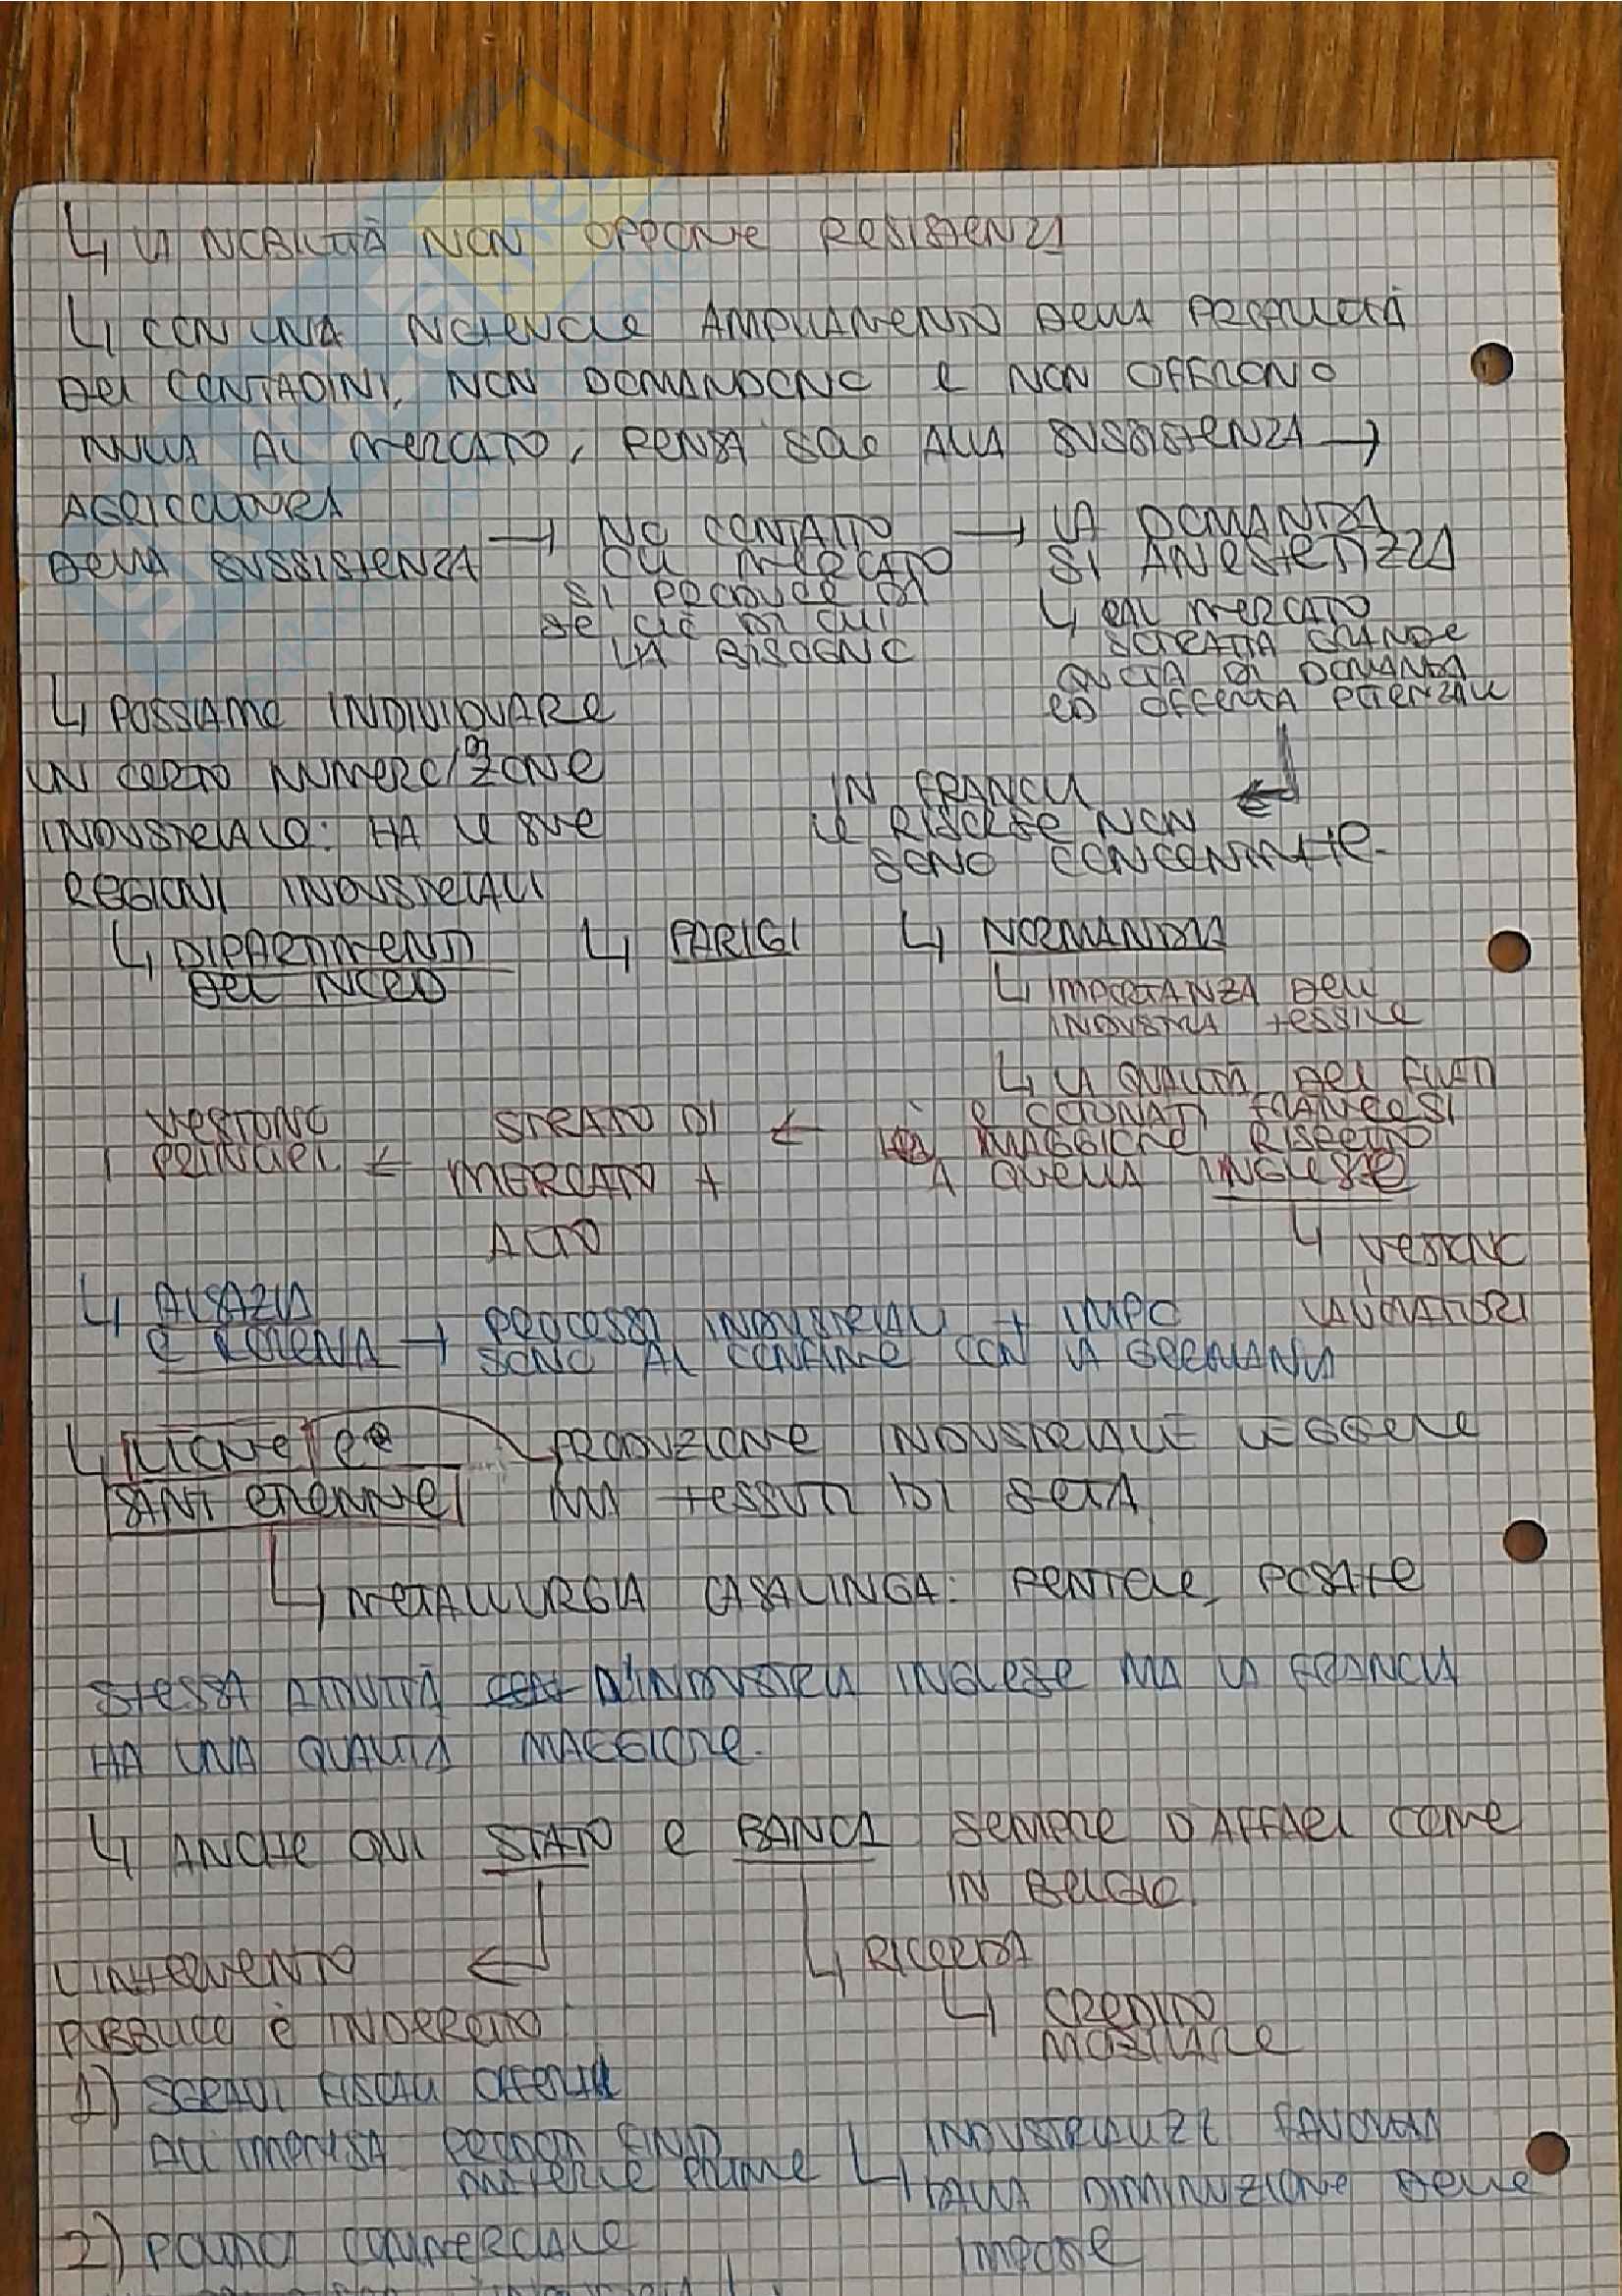 ↳ LA NOBILITÀ NON OPPONE RESISTENZA
↳ CON UN NOTEVOLE AMPLIAMENTO DELLA PROPRIETÀ
DEI CONTADINI, NON DOMANDONO E NON OFFRONO
NULLA AL MERCATO, PENSA SOLO ALLA SUSSISTENZA →
AGRICOLTURA
DELLA SUSSISTENZA → NO CONTATTO
COL MERCATO
SI PRODUCE DA
SE CIÒ DI CUI
HA BISOGNO
→ LA DOMANDA
SI ANESTETIZZA
↳ DAL MERCATO
SOTRATTA GRANDE
QUOTA DI DOMANDA
ED OFFERTA POTENZIALE
IN FRANCIA
LE RISORSE NON
SONO CONCENTRATE.
↳ POSSIAMO INDIVIDUARE
UN CERTO NUMERO/DI ZONE
INDUSTRIALE: HA LE SUE
REGIONI INDUSTRIALI
↳ DIPARTIMENTI
DEL NORD
↳ PARIGI
↳ NORMANDIA
↳ IMPORTANZA DELL
INDUSTRIA TESSILE
↳ LA QUALITÀ DEI FILATI
E COTONATI FRANCESI
È MAGGIORE RISPETTO
A QUELLA INGLESE
← STRATO DI
MERCATO +
ALTO
← VESTONO
I PRINCIPI
↳ VESTONO
LAVORATORI
↳ ALSAZIA
E LORENA → PROCESSI INDUSTRIALI + IMPO
SONO AL CONFINE CON LA GERMANIA
↳ LIONE E
SANT ETIENNE
PRODUZIONE INDUSTRIALE LEGGERE
TESSUTI DI SETA
↳ METALLURGIA CASALINGA: PENTOLE, POSATE
STESSA ATTIVITÀ D'INDUSTRIA INGLESE MA LA FRANCIA
HA UNA QUALITÀ MAGGIORE.
↳ ANCHE QUI STATO E BANCA SEMPRE D'AFFARI COME
IN BELGIO
L'INTERVENTO
PUBBLICO È INDIRETTO
↳ RICORDA
↳ CREDITO
MOBILIARE
1) SGRAVI FISCALI OFFERTI
ALL'IMPRESA PRODOTTI FINITI
MATERIE PRIME
↳ DALLA DIMINUZIONE DELLE
IMPOSTE
2) POLITICA COMMERCIALE